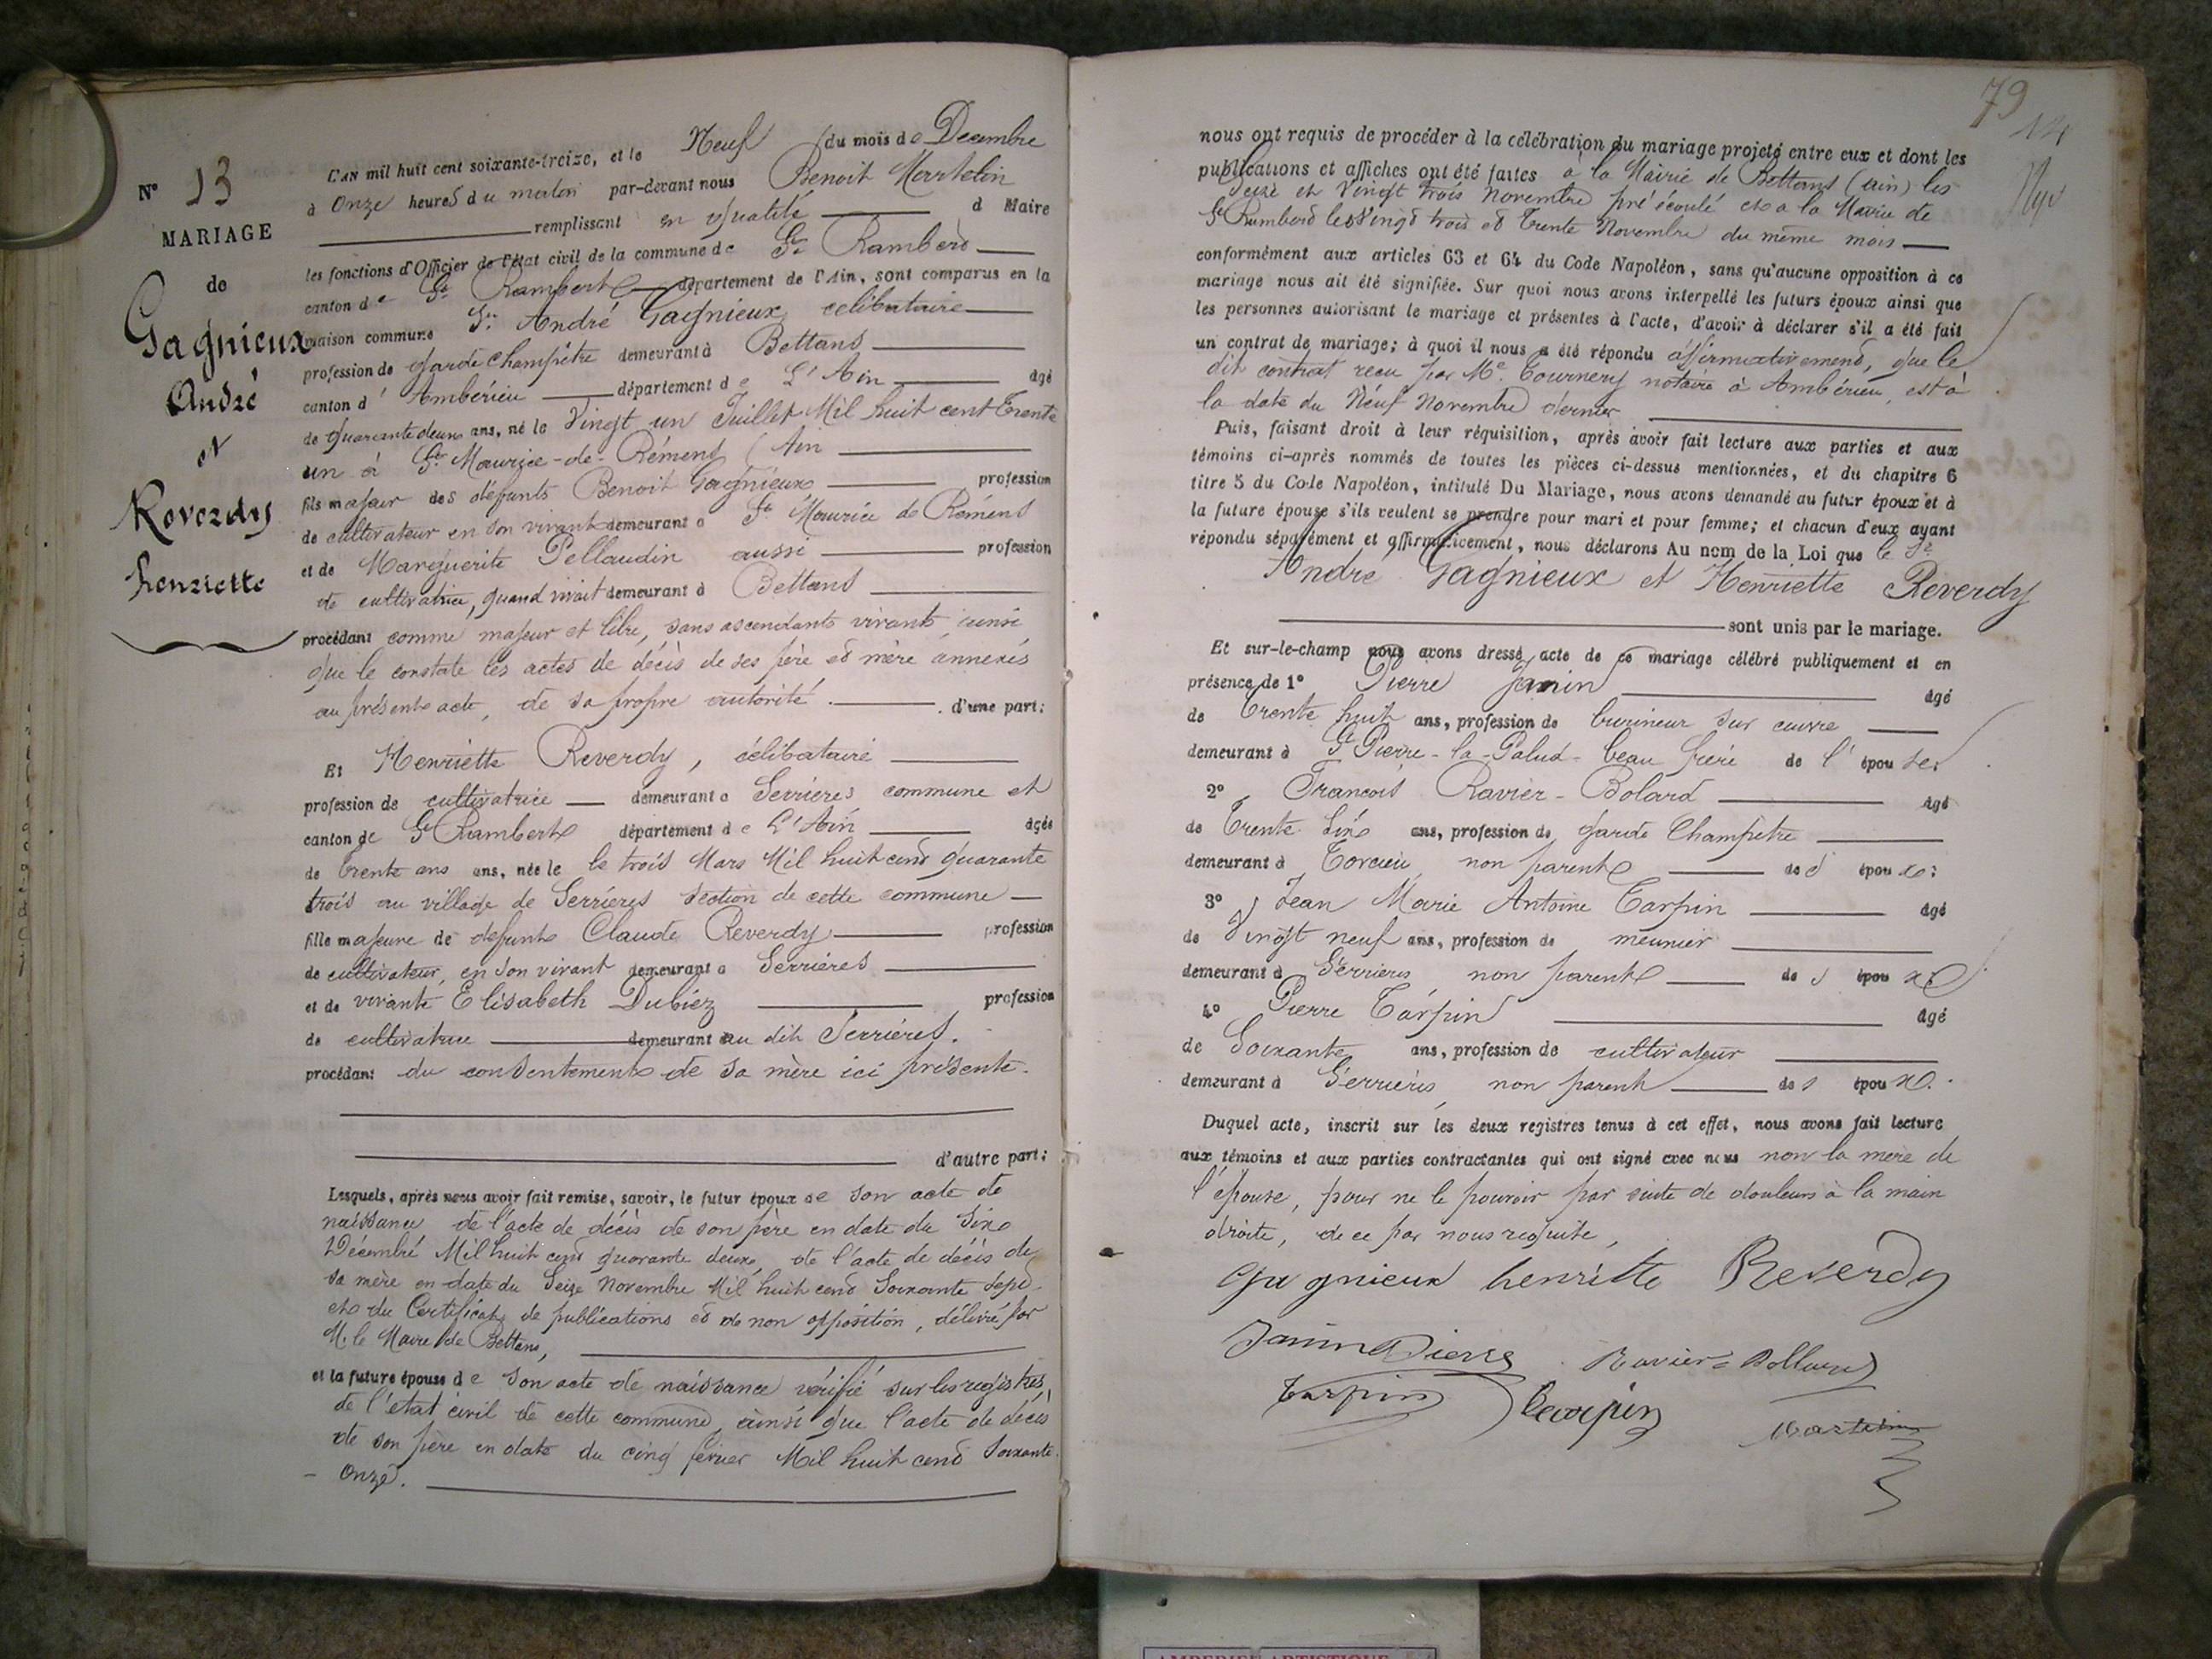 N° 13
MARIAGE
de
Gagnieux
André
et
Reverdy
henriette
L'AN mil huit cent soixante-treize, et le Neuf du mois de Decembre
à Onze heures du matin par-devant nous Benoit Martelin
remplissant en qualité d Maire
les fonctions d'Officier de l'état civil de la commune de St Rambert
canton de St Rambert département de l'Ain, sont comparus en la
maison commune Sr André Gagnieux célibataire
profession de garde champêtre demeurant à Bettans
canton d' Ambérieu département de L'Ain âgé
de quarante deux ans, né le Vingt un Juillet Mil huit cent Trente
un à St Maurice-de-Rémens (Ain
fils majeur des défunts Benoit Gagnieux profession
de cultivateur en son vivant demeurant à St Maurice de Rémens
et de Marguerite Pellaudin aussi profession
de cultivatrice, quand vivait demeurant à Bettans
procédant comme majeur et libre, sans ascendants vivants, ainsi
que le constate les actes de décès de ses père et mère annexés
au présent acte, de sa propre autorité. d'une part;
Et Henriette Reverdy, célibataire
profession de cultivatrice demeurant à Serrières commune et
canton de St Rambert département de L'Ain âgée
de trente ans ans, née le le trois Mars Mil huit cent quarante
trois au village de Serrières section de cette commune
fille majeure de défunt Claude Reverdy profession
de cultivateur, en son vivant demeurant à Serrières
et de vivante Elisabeth Dubiez profession
de cultivatrice demeurant au dit Serrières.
procédant du consentement de sa mère ici présente.
d'autre part;
Lesquels, après nous avoir fait remise, savoir, le futur époux de son acte de
naissance de l'acte de décès de son père en date du Six
Décembre Mil huit cent quarante deux, de l'acte de décès de
sa mère en date du Seize Novembre Mil huit cent Soixante sept
et du Certificat de publications et de non opposition, délivré par
M. le Maire de Bettans,
et la future épouse de son acte de naissance vérifié sur les registres
de l'état civil de cette commune, ainsi que l'acte de décès
de son père en date du cinq février Mil huit cent Soixante
- Onze.
79
nous ont requis de procéder à la célébration du mariage projeté entre eux et dont les
publications et affiches ont été faites à la Mairie de Bettans (Ain) les
Seize et Vingt trois Novembre pré écoulé et à la Mairie de
St Rambert les Vingt trois et Trente Novembre du même mois
conformément aux articles 63 et 64 du Code Napoléon, sans qu'aucune opposition à ce
mariage nous ait été signifiée. Sur quoi nous avons interpellé les futurs époux ainsi que
les personnes autorisant le mariage et présentes à l'acte, d'avoir à déclarer s'il a été fait
un contrat de mariage; à quoi il nous a été répondu affirmativement, que le
dit contrat reçu par Me Tournery notaire à Ambérieu, est à
la date du Neuf Novembre dernier
Puis, faisant droit à leur réquisition, après avoir fait lecture aux parties et aux
témoins ci-après nommés de toutes les pièces ci-dessus mentionnées, et du chapitre 6
titre 5 du Code Napoléon, intitulé Du Mariage, nous avons demandé au futur époux et à
la future épouse s'ils veulent se prendre pour mari et pour femme; et chacun d'eux ayant
répondu séparément et affirmativement, nous déclarons Au nom de la Loi que le Sr
André Gagnieux et Henriette Reverdy
sont unis par le mariage.
Et sur-le-champ nous avons dressé acte de ce mariage célébré publiquement et en
présence de 1° Pierre Janin âgé
de Trente huit ans, profession de burineur sur cuivre
demeurant à St Pierre-la-Palud - beau frère de l' épouse.
2° François Ravier-Bolard âgé
de Trente Six ans, profession de garde Champêtre
demeurant à Torcieu non parent des époux;
3° Jean Marie Antoine Tarpin âgé
de Vingt neuf ans, profession de meunier
demeurant à Serrières non parent des époux
4° Pierre Tarpin âgé
de Soixante ans, profession de cultivateur
demeurant à Serrières, non parent des époux.
Duquel acte, inscrit sur les deux registres tenus à cet effet, nous avons fait lecture
aux témoins et aux parties contractantes qui ont signé avec nous non la mère de
l'épouse, pour ne le pouvoir par suite de douleurs à la main
droite, de ce par nous requise,
Gagnieux henriette Reverdy
Janin Pierre Ravier-Bollard
Tarpin Tarpin Martelin
AMBERIEU ARTISTIQUE